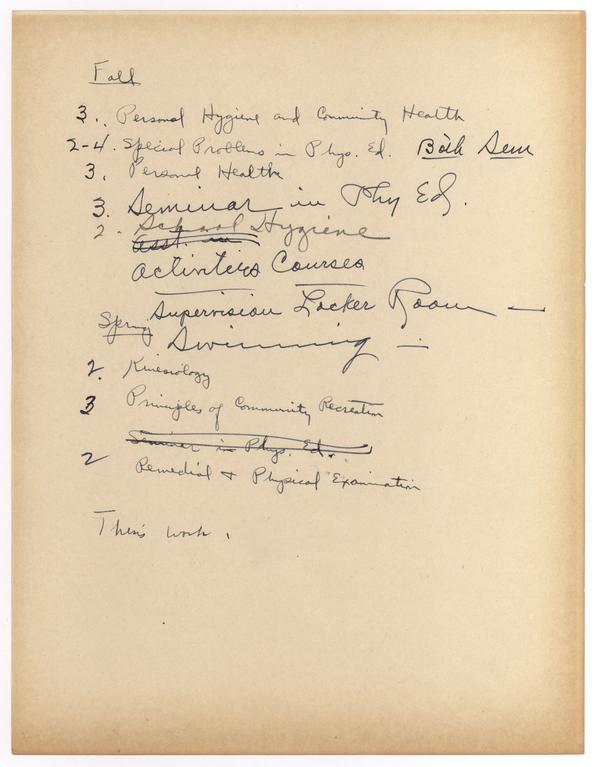 Fall
3. Personal Hygiene and Community Health
2-4. Special Problems in Phys. Ed. Both Sem
3. Personal Health
3. Seminar in Phy Ed.
2. School Hygiene
asst. in
Activities Courses
Supervision Locker Room —
Spring
Swimming —
2. Kinesiology
3 Principles of Community Recreation
Seminar in Phys. Ed.
2 Remedial & Physical Examination
Thesis work.